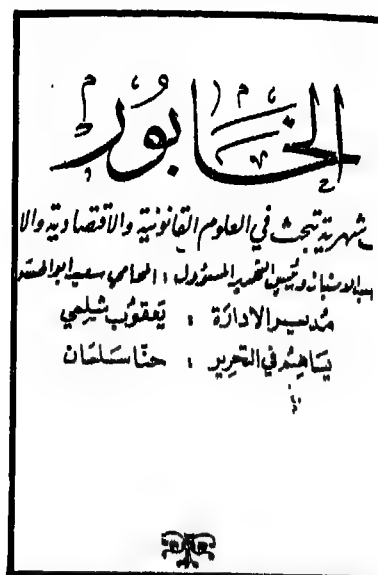 الخابور
شهرية تبحث في العلوم القانونية والاقتصادية والا
ورئيس التحرير المسؤول : المحامي سعيد ابو الحسن
مدير الادارة : يعقوب شلمي
يساهم في التحرير : حنا سلمان